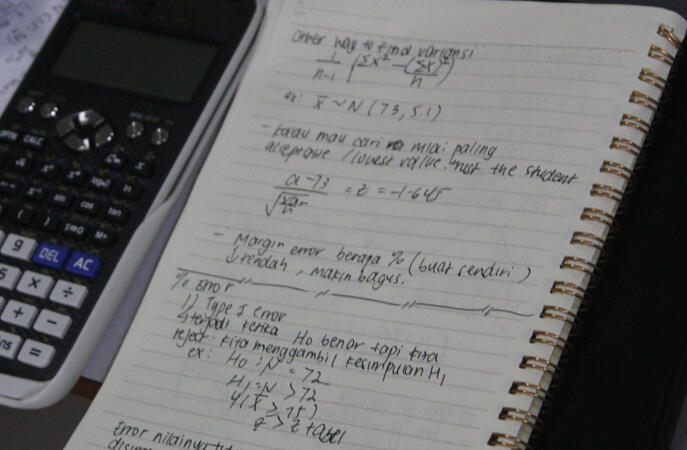 Other way to find variansi
1/n-1 (Σx² - (Σx)²/n)
ex: x̄ ~ N (73, 5.1)
- kalau mau cari nilai paling
acceptable / lowest value, not the student
a - 73 / √ = z = -1.645
- Margin error berapa % (buat sendiri)
↓ rendah, makin bagus.
% error
1) Type I error
↳ terjadi ketika H0 benar tapi kita
reject. kita mengambil kesimpulan H1
ex: H0 : = 72
H1 : > 72
(x̄ > 75)
z > z tabel
Error nilainya
9 DEL AC
× ÷
+ -
=
sin cos tan
( ) S⇔D M+